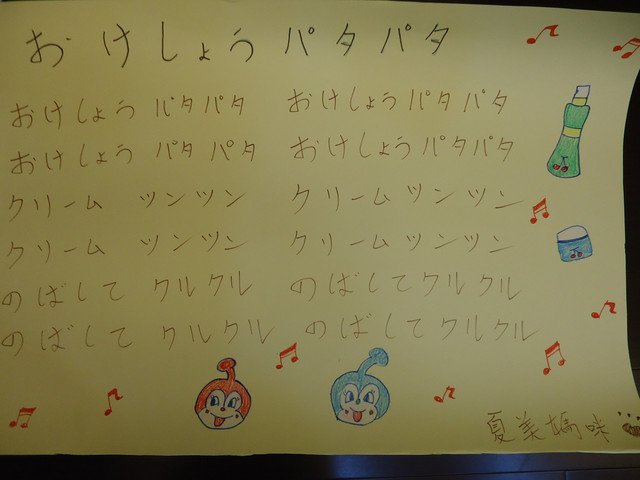 おけしょうパタパタ
おけしょう パタパタ おけしょうパタパタ
おけしょう パタパタ おけしょうパタパタ
クリーム ツンツン クリームツンツン
クリーム ツンツン クリームツンツン
のばして クルクル のばしてクルクル
のばして クルクル のばしてクルクル
夏美媽咪